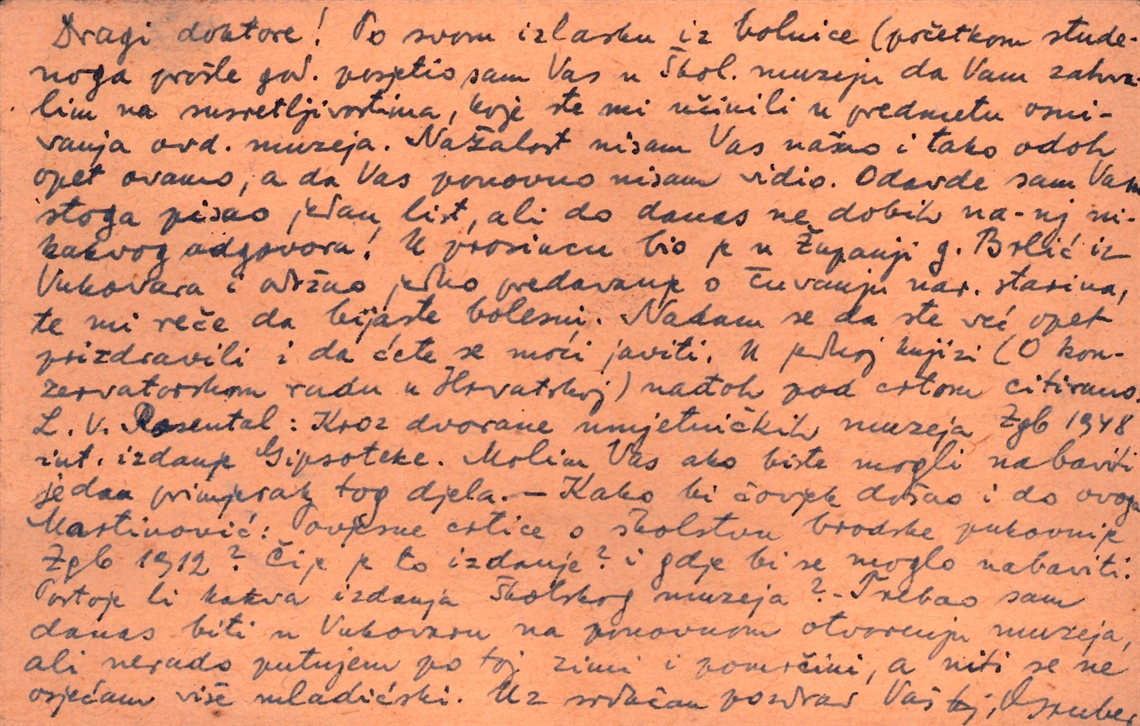 Dragi doktore! Po svom izlasku iz bolnice (početkom stude-
noga prošle god. posjetio sam Vas u Škol. muzeju da Vam zahva-
lim na susretljivostima, koje ste mi učinili u predmetu osni-
vanja ovd. muzeja. Nažalost nisam Vas našao i tako odoh
opet ovamo, a da Vas ponovno nisam vidio. Odavde sam Vam
stoga pisao jedan list, ali do danas ne dobih na-nj ni-
kakvog odgovora! U prosincu bio je u Županji g. Brlić iz
Vukovara i održao jedno predavanje o čuvanju nar. starina,
te mi reče da bijaste bolesni. Nadam se da ste već opet
prizdravili i da ćete se moći javiti. U jednoj knjizi (O kon-
zervatorskom radu u Hrvatskoj) nađoh pod crtom citirano.
L. V. Rosental: Kroz dvorane umjetničkih muzeja Zgb 1948
int. izdanje Gipsoteke. Molim Vas ako biste mogli nabaviti
jedan primjerak tog djela. – Kako bi čovjek došao i do ovoga
Martinović: Povjesne crtice o školstvu brodske pukovnije
Zgb 1912? Čije je to izdanje? i gdje bi se moglo nabaviti.
Postoje li kakva izdanja Školskog muzeja? – Trebao sam
danas biti u Vukovaru na ponovnom otvorenju muzeja,
ali nerado putujem po toj zimi i pomrčini, a niti se ne
osjećam više mladićski. Uz srdačan pozdrav Vaš